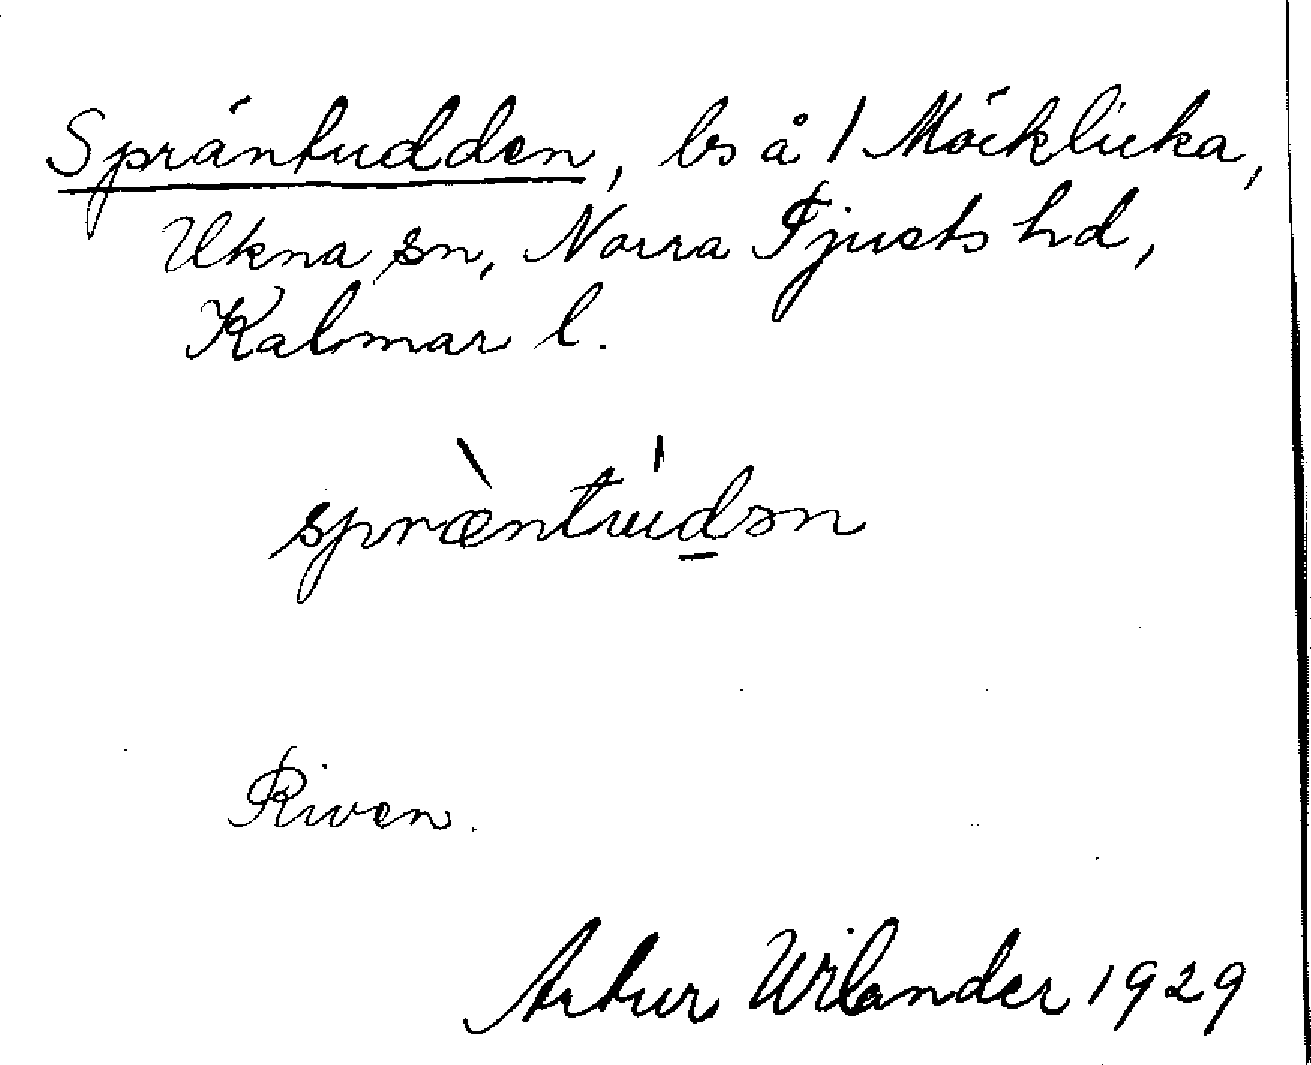 Spräntudden, ls å 1 Möcklicka,
Ukna sn, Norra Tjusts hd,
Kalmar l.
spræ̀ntúd̲ən
Riven.
Artur Wilander 1929